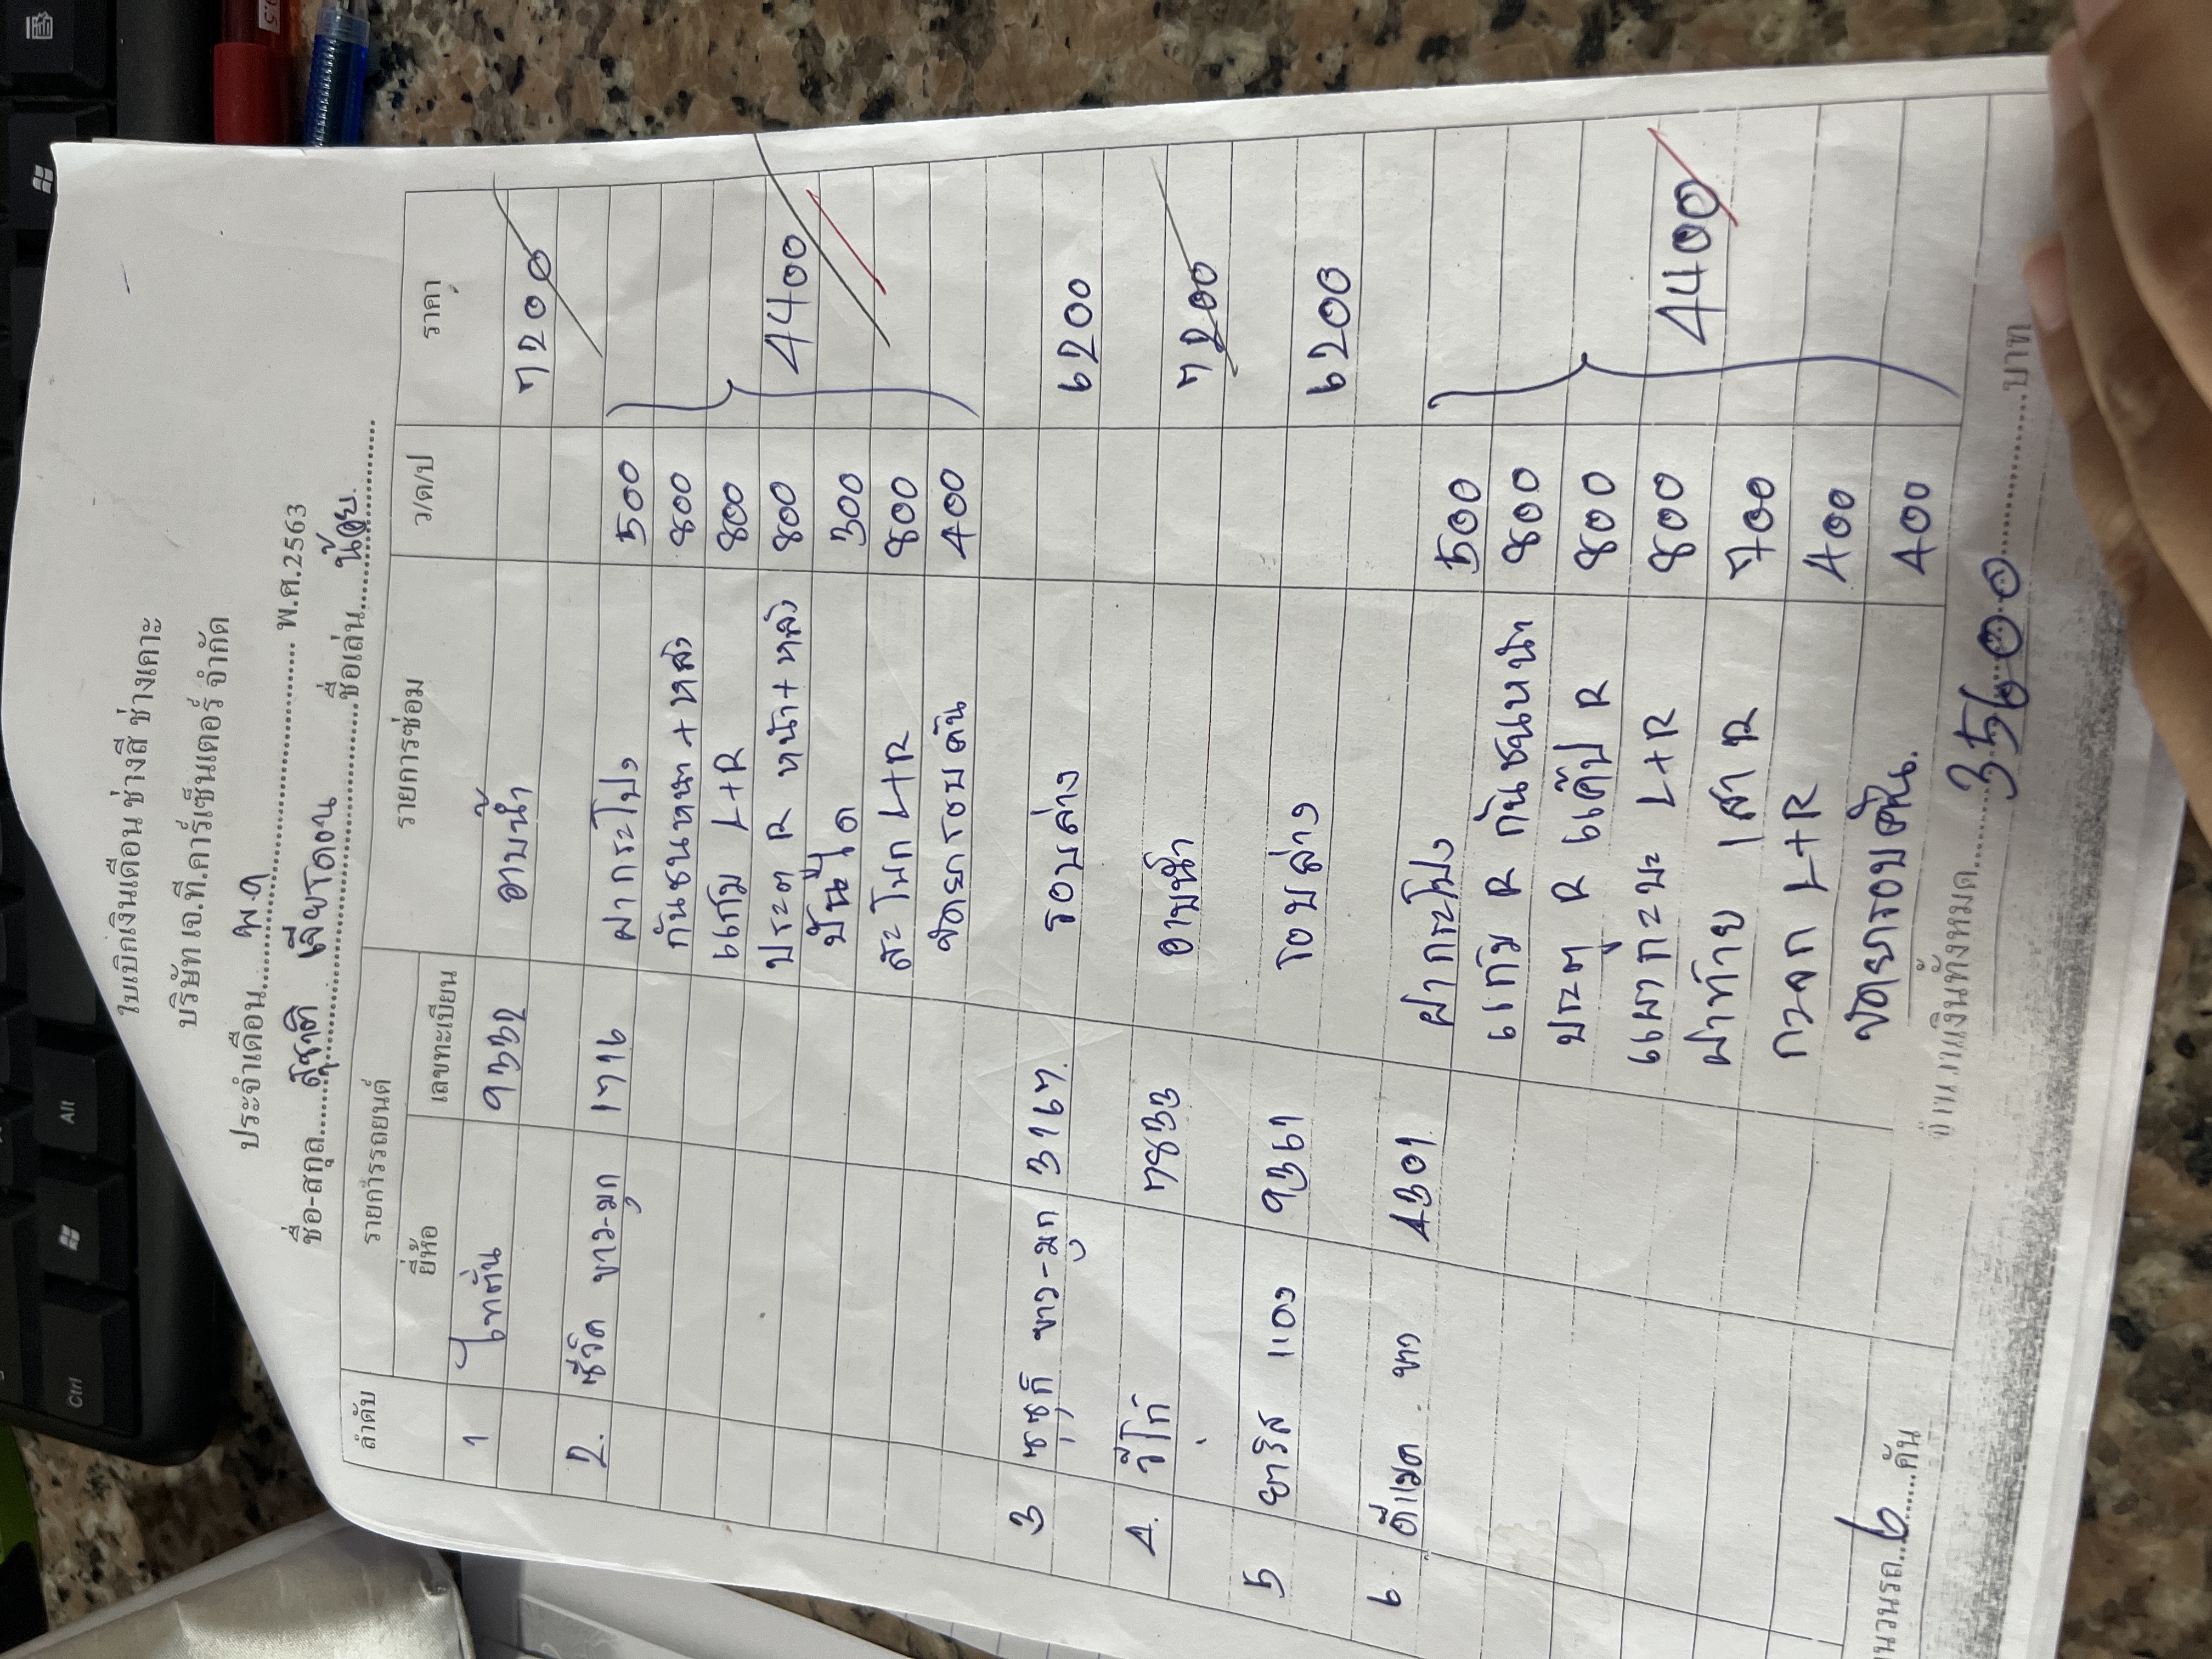 ใบเบิกเงินเดือน ช่างสี ช่างเคาะ
บริษัท เจ.ที.คาร์เซ็นเตอร์ จำกัด
ประจำเดือน.....พ.ค............ พ.ศ.2563
ชื่อ-สกุล....สุชาติ.............ชื่อเล่น.....น้อย.....
ลำดับ รายการรถยนต์ รายการซ่อม ว/ด/ป ราคา
ยี่ห้อ เลขทะเบียน
1 ไททั่น 9332 อาบน้ำ 7200
2. ซีวิค ขาว-มุก 1716 ฝากระโปง 500
กันชนหน้า + หลัง 800
แก้ม L+R 800
ประตู R หน้า + หลัง 800 4400
บันได 300
สะโพก L+R 800
ขัดยารอบคัน 400
3 ซูซูกิ ขาว-มุก 3167 รอบล่าง 6200
4. วีโก้ 7833 อาบน้ำ 7200
5 ยาริส แดง 9361 รอบล่าง 6200
6. ดีแมค ขาว 4301 ฝากระโปง 500
แก้ม R กันชนหน้า 800
ประตู R แค๊ป R 800
แผงกะบะ L+R 800 4400
ฝาท้าย เสา R 700
กวจก L+R 400
ขัดยารอบคัน. 400
นวนรถ...6.....คัน เงินทั้งหมด......35600..........บาท